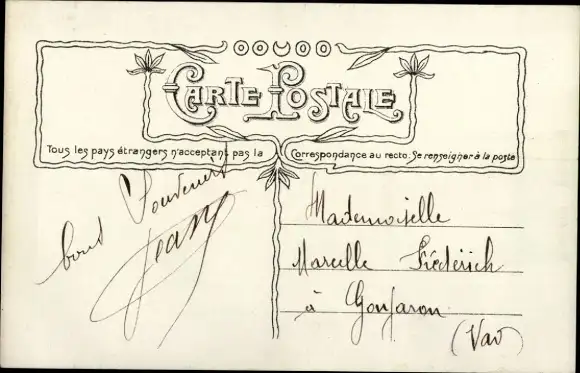 CARTE POSTALE
Tous les pays étrangers n'acceptant pas la Correspondance au recto. Se renseigner à la poste
bons Souvenirs
Jean
Mademoiselle
Marcelle Frédérich
à Gonfaron
(Var)